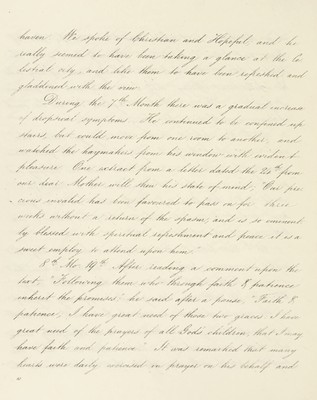 haven. We spoke of Christian and Hopeful, and he
really seemed to have been taking a glance at the Ce
lestial city, and like them to have been refreshed and
gladdened with the view.
During the 7th Month there was a gradual increase
of dropsical symptoms. He continued to be confined up
stairs, but would move from one room to another, and
watched the haymakers from his window with evident
pleasure. One extract from a letter dated the 24th from
our dear Mother will shew his state of mind, "Our pre
cious invalid has been favoured to pass on for three
weeks without a return of the spasm, and is so eminent
ly blessed with spiritual refreshment and peace it is a
sweet employ to attend upon him."
8th Mo. 19th. After reading a comment upon the
text, "Following them who through faith & patience
inherit the promises" he said after a pause, "Faith &
patience, I have great need of these two graces I have
great need of the prayers of all God's children, that I may
have faith and patience." It was remarked that many
hearts were daily exercised in prayer on his behalf and